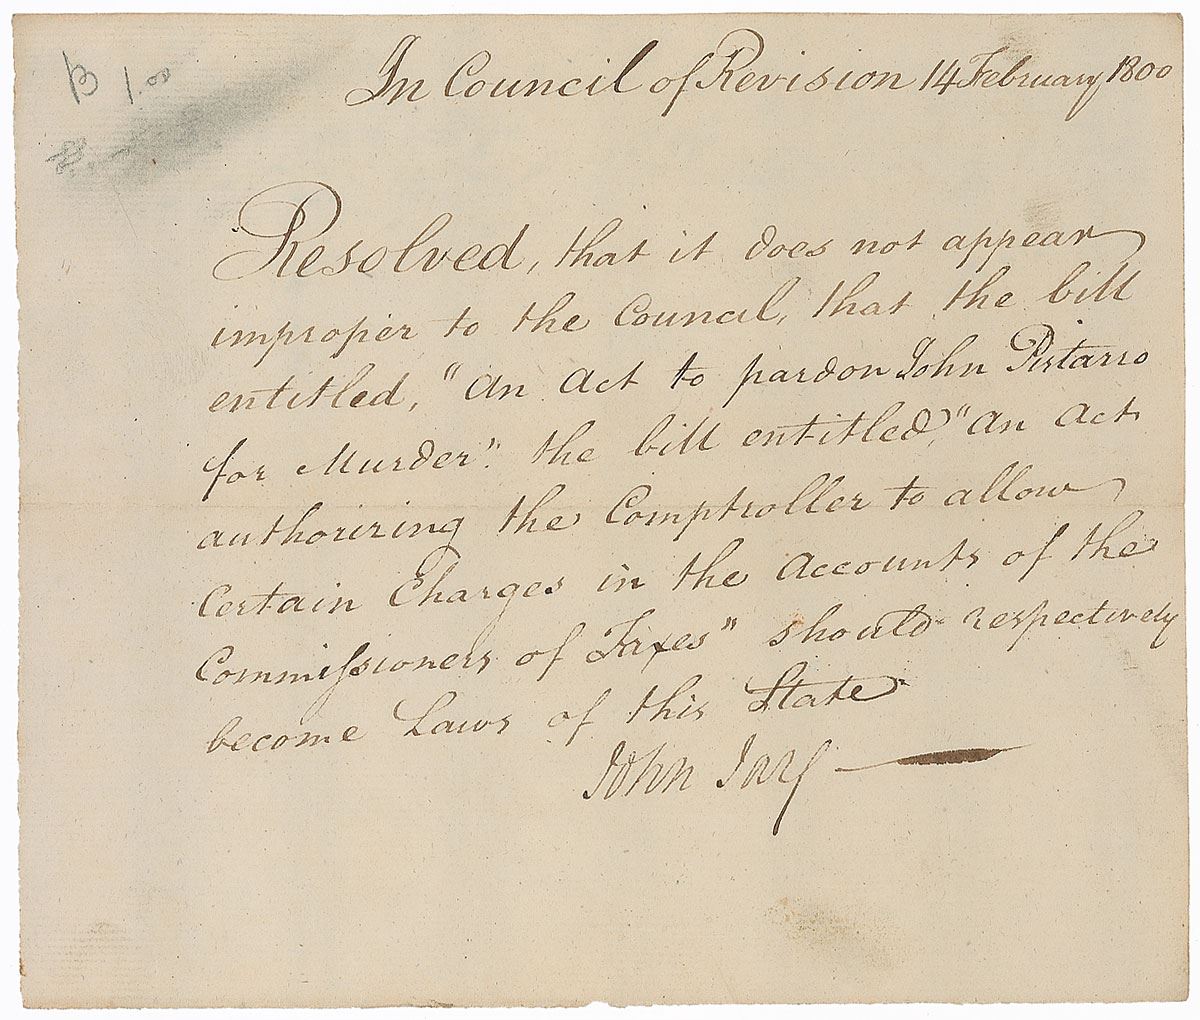 B 1.00
In Council of Revision 14 February 1800
Resolved, that it does not appear
improper to the Council, that the bill
entitled, "An Act to pardon John Pistarro
for Murder". the bill entitled, "An Act
authorizing the Comptroller to allow
Certain Charges in the Accounts of the
Commissioners of Taxes" should respectively
become Laws of this State
John Jay